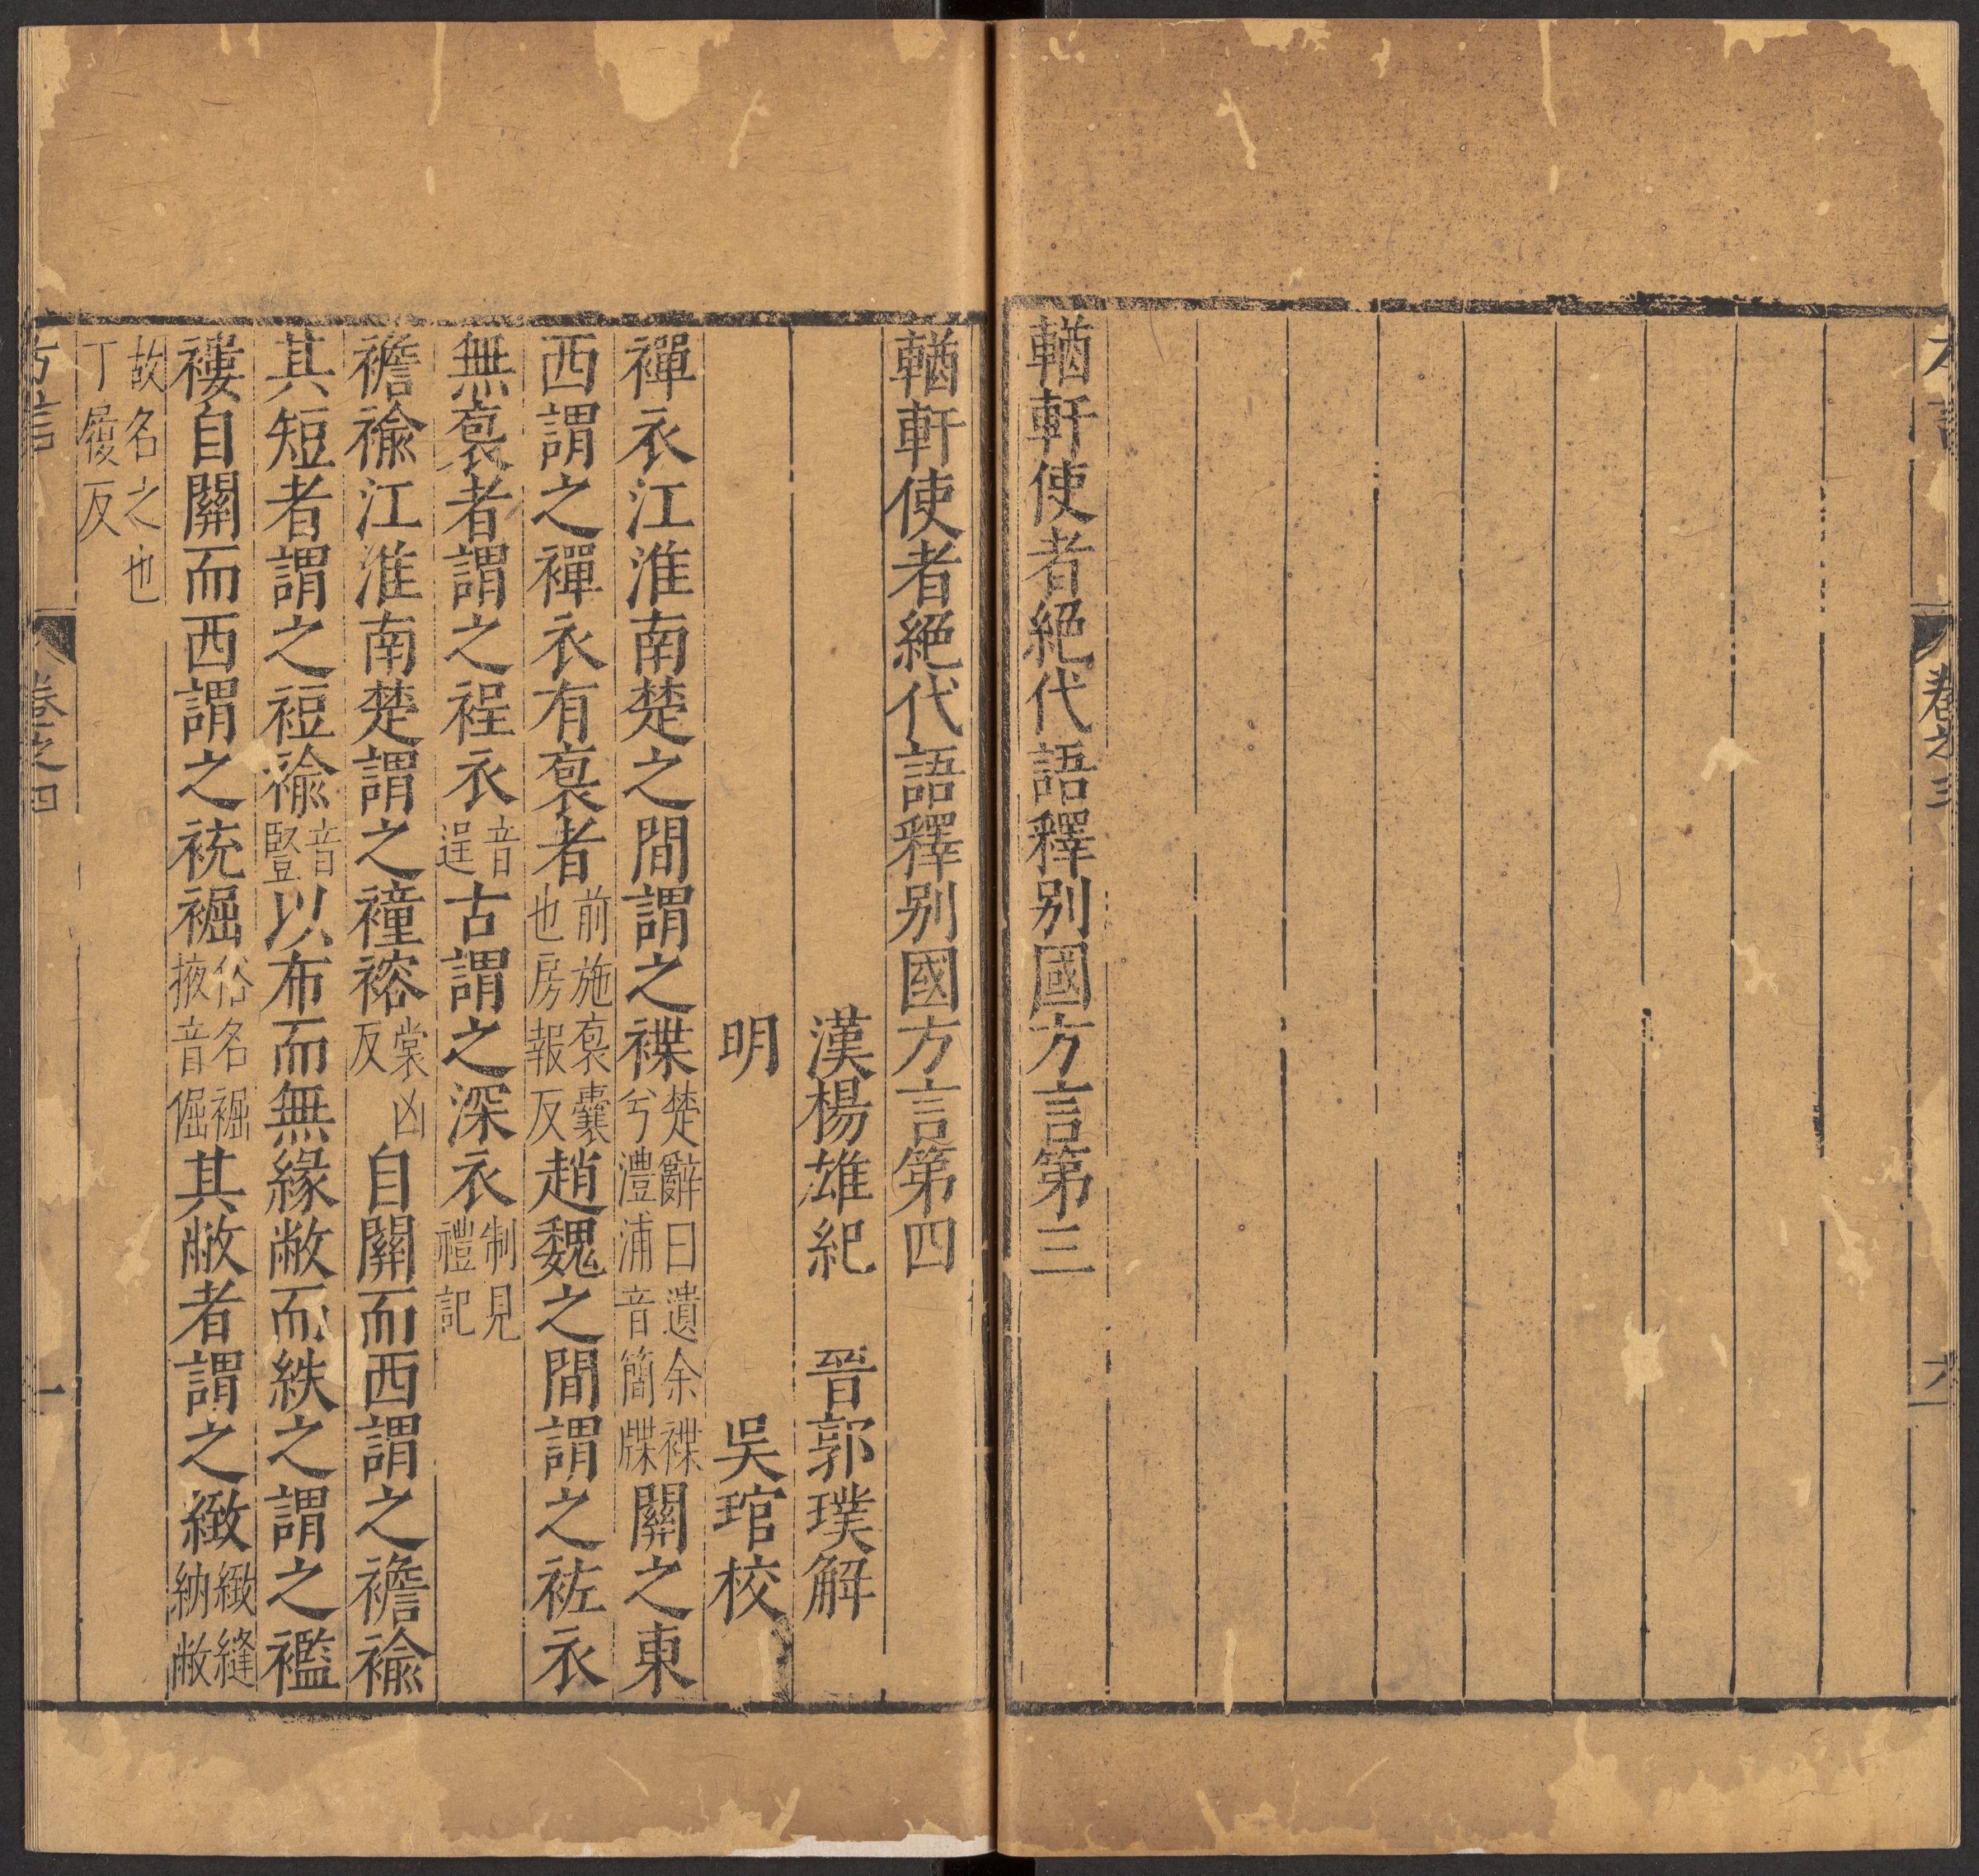 方言
卷之三
六
輶軒使者絕代語釋別國方言第三
輶軒使者絕代語釋別國方言第四
漢楊雄紀 晉郭璞解
明 吳琯校
襌衣江淮南楚之間謂之褋楚辭曰遺余褋兮澧浦音簡牒關之東
西謂之襌衣有袌者前施袌囊也房報反趙魏之間謂之袏衣
無袌者謂之裎衣音逞古謂之深衣制見禮記
襜褕江淮南楚謂之橦褣裳凶反自關而西謂之襜褕
其短者謂之裋褕音豎以布而無緣敝而紩之謂之襤
褸自關而西謂之裗裾俗名裾掖音倔其敝者謂之緻緻縫納敝
故名之也丁履反
方言
卷之四
一